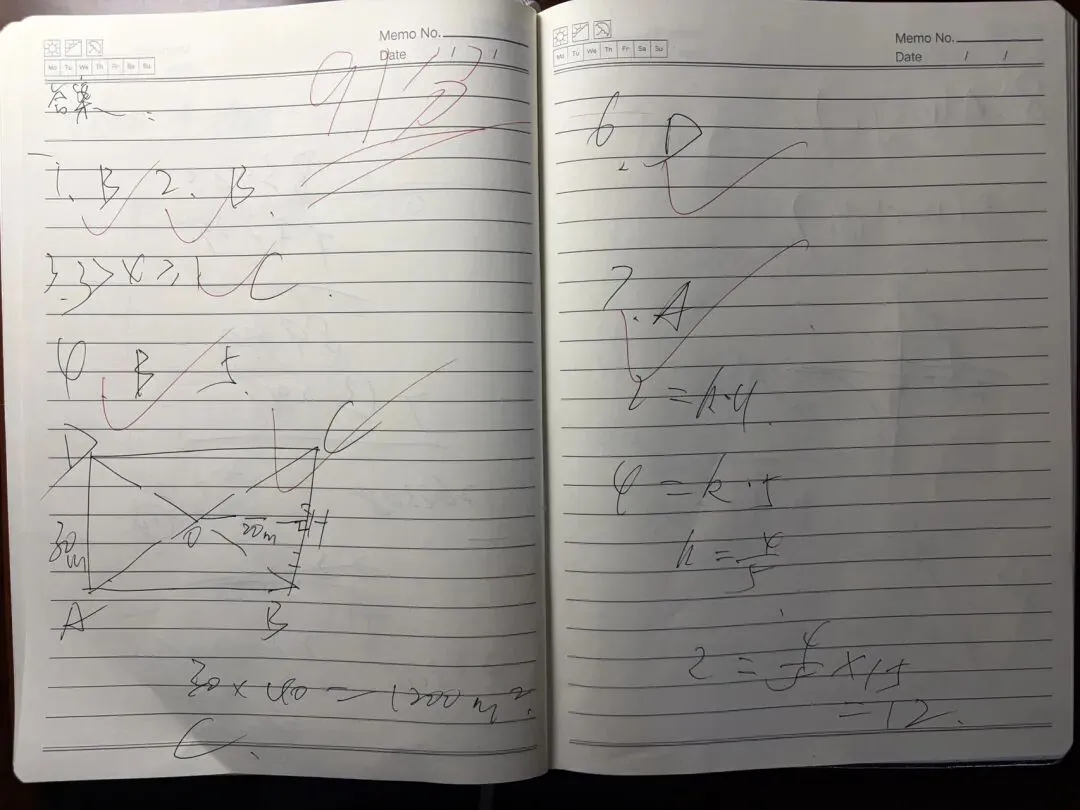 Memo No.
Mo Tu We Th Fr Sa Su
Date / /
答案：
91分
一
1. B 2. B.
3. 3>x≥1 C.
4 B 5.
D C
30m O 20m H
A B
30×40=1200m².
C.
Memo No.
Mo Tu We Th Fr Sa Su
Date / /
6. D
7. A
z=k·y.
4=k·5
k=4/5
z=4/5×15
=12.